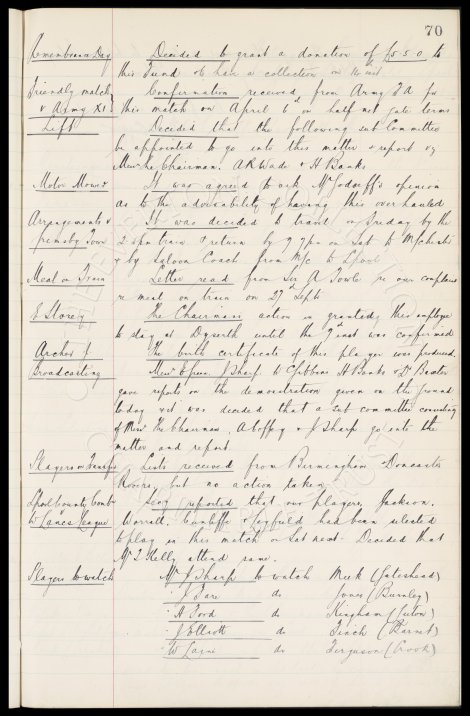 70
Remembrance Day Decided to grant a donation of £5 5 0 to
this Fund & have a collection on the
Friendly match Confirmation received from Army F A for
v Army XI this match on April 6th on half net gate terms
Lift Decided that the following sub Committee
be appointed to go into this matter & report
Messrs the Chairman. A R Wade & H Banks
Motor Mower It was agreed to ask Mr opinion
as to the advisability of having this overhauled
Arrangements v It was decided to travel on Friday by the
Grimsby Town train & return by on Sat to M/chester
& by Saloon Coach from M/c to L'pool
Meal on Train Letter read from Sir A Towle re our complaint
re meal on train on 27th Sept
E Storey The Chairmans action in granting this employee
to stay at Dyserth until the inst was confirmed
Archer J The birth certificate of this player was produced.
Broadcasting Messrs J Sharp W C Gibbins H Banks & Dr Baxter
gave reports on the demonstration given on the ground
today & it was decided that a sub committee consisting
of Messrs the Chairman, & J Sharp go into the
matter and report.
Players on Transfer Lists received from Birmingham & Doncaster
Rovers, but no action taken
L'pool County Comb v Secy reported that our players, Jackson,
W Lancs League Worrall, Cunliffe & had been selected
to play in this match on Sat next. Decided that
Mr T Kelly attend same.
Players to watch Mr J Sharp to watch Meek (Gateshead)
" do Jones (Burnley)
" A Tood do Kingham (Luton)
" J Elliott do Finch (Barnet)
" W do Ferguson (Crook)